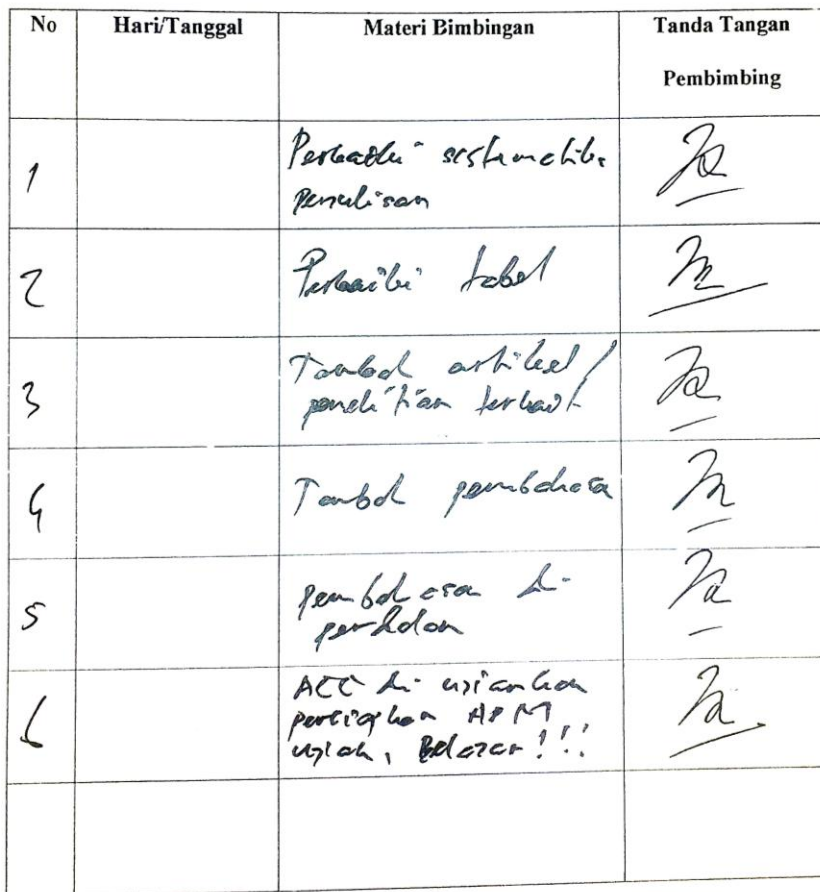 No Hari/Tanggal Materi Bimbingan Tanda Tangan
Pembimbing
1 Perbaiki sistematika
penulisan
2 Perbaiki tabel
3 Tambah artikel/
penelitian terkait
4 Tambah pembahasa
5 pembahasan di
perdalam
6 ACC di ujiankan
persiapkan APM
ujian, Belajar!!!